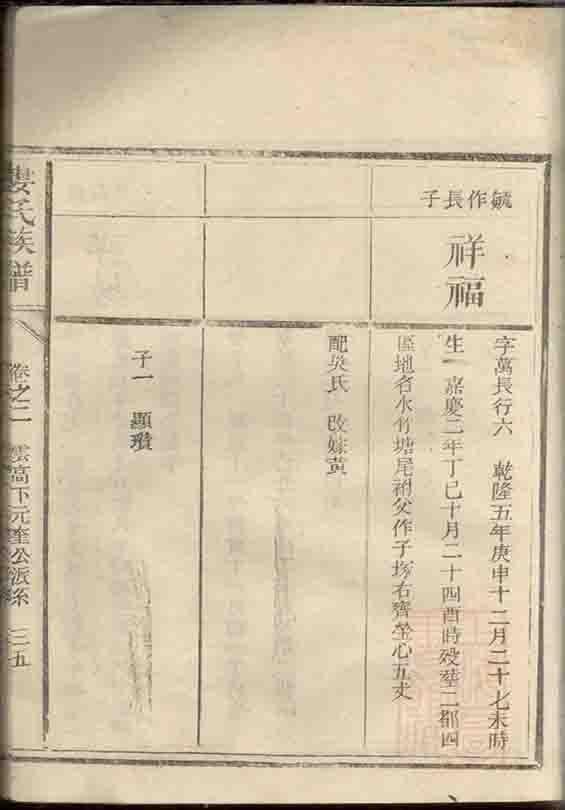 毓作長子
祥福
字萬長行六 乾隆五年庚申十二月二十七未時
生 嘉慶二年丁巳十月二十四酉時殁塟二都四
區地名水竹塘尾祔父作子塚右齊塋心五丈
配吳氏 改嫁黃
子一 顯瓚
婁氏族譜
卷之二 雲高下元奎公派系 三五